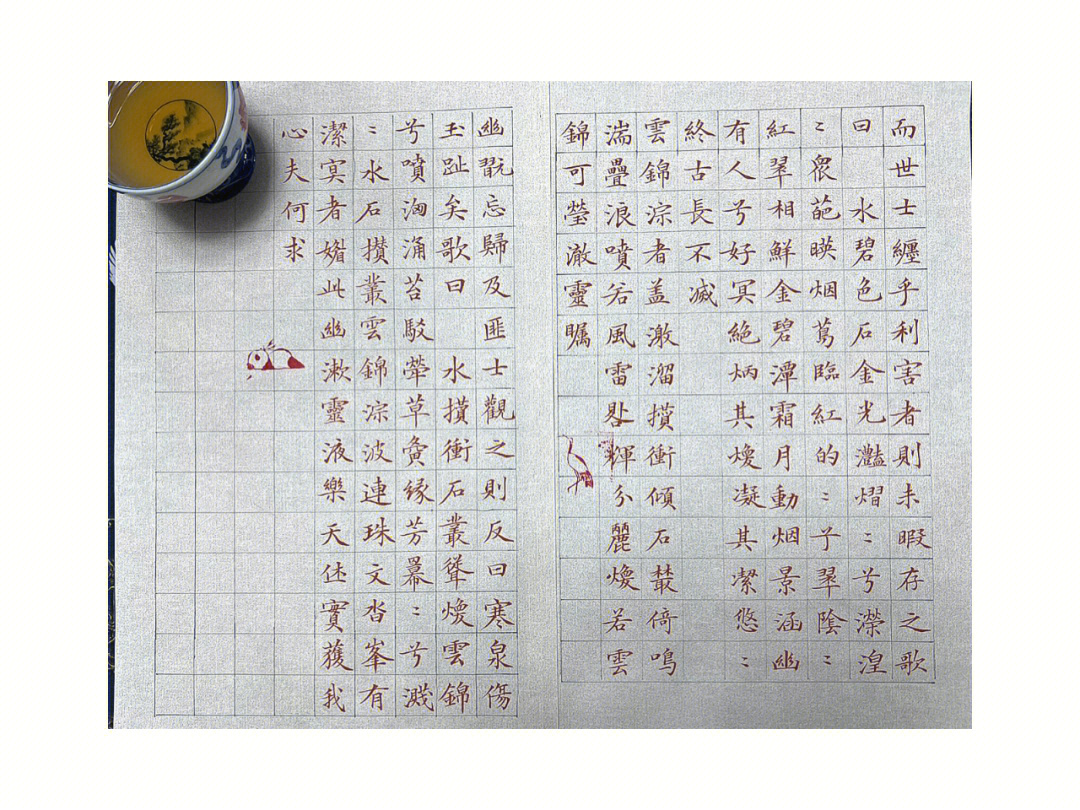 而世士纏乎利害者則未暇存之歌
曰 水碧色石金光灩熠〻兮濴湟
〻眾葩暎烟蔦臨紅的〻子翠陰〻
紅翠相鮮金碧潭霜月動烟景涵幽
有人兮好冥絕炳其煥凝其潔悠〻
終古長不滅
雲錦淙者盖激溜攢衝傾石叢倚鳴
湍疊浪噴若風雷輝分麗煥若雲
錦可瑩澈靈矚
幽翫忘歸及匪士觀之則反曰寒泉傷
玉趾矣歌曰 水攢衝石叢聳煥雲錦
兮噴洶涌苔駁犖草夤緣芳冪〻兮濺
〻水石攢叢雲錦淙波連珠文沓峯有
潔冥者媚此幽漱靈液樂天休實獲我
心夫何求